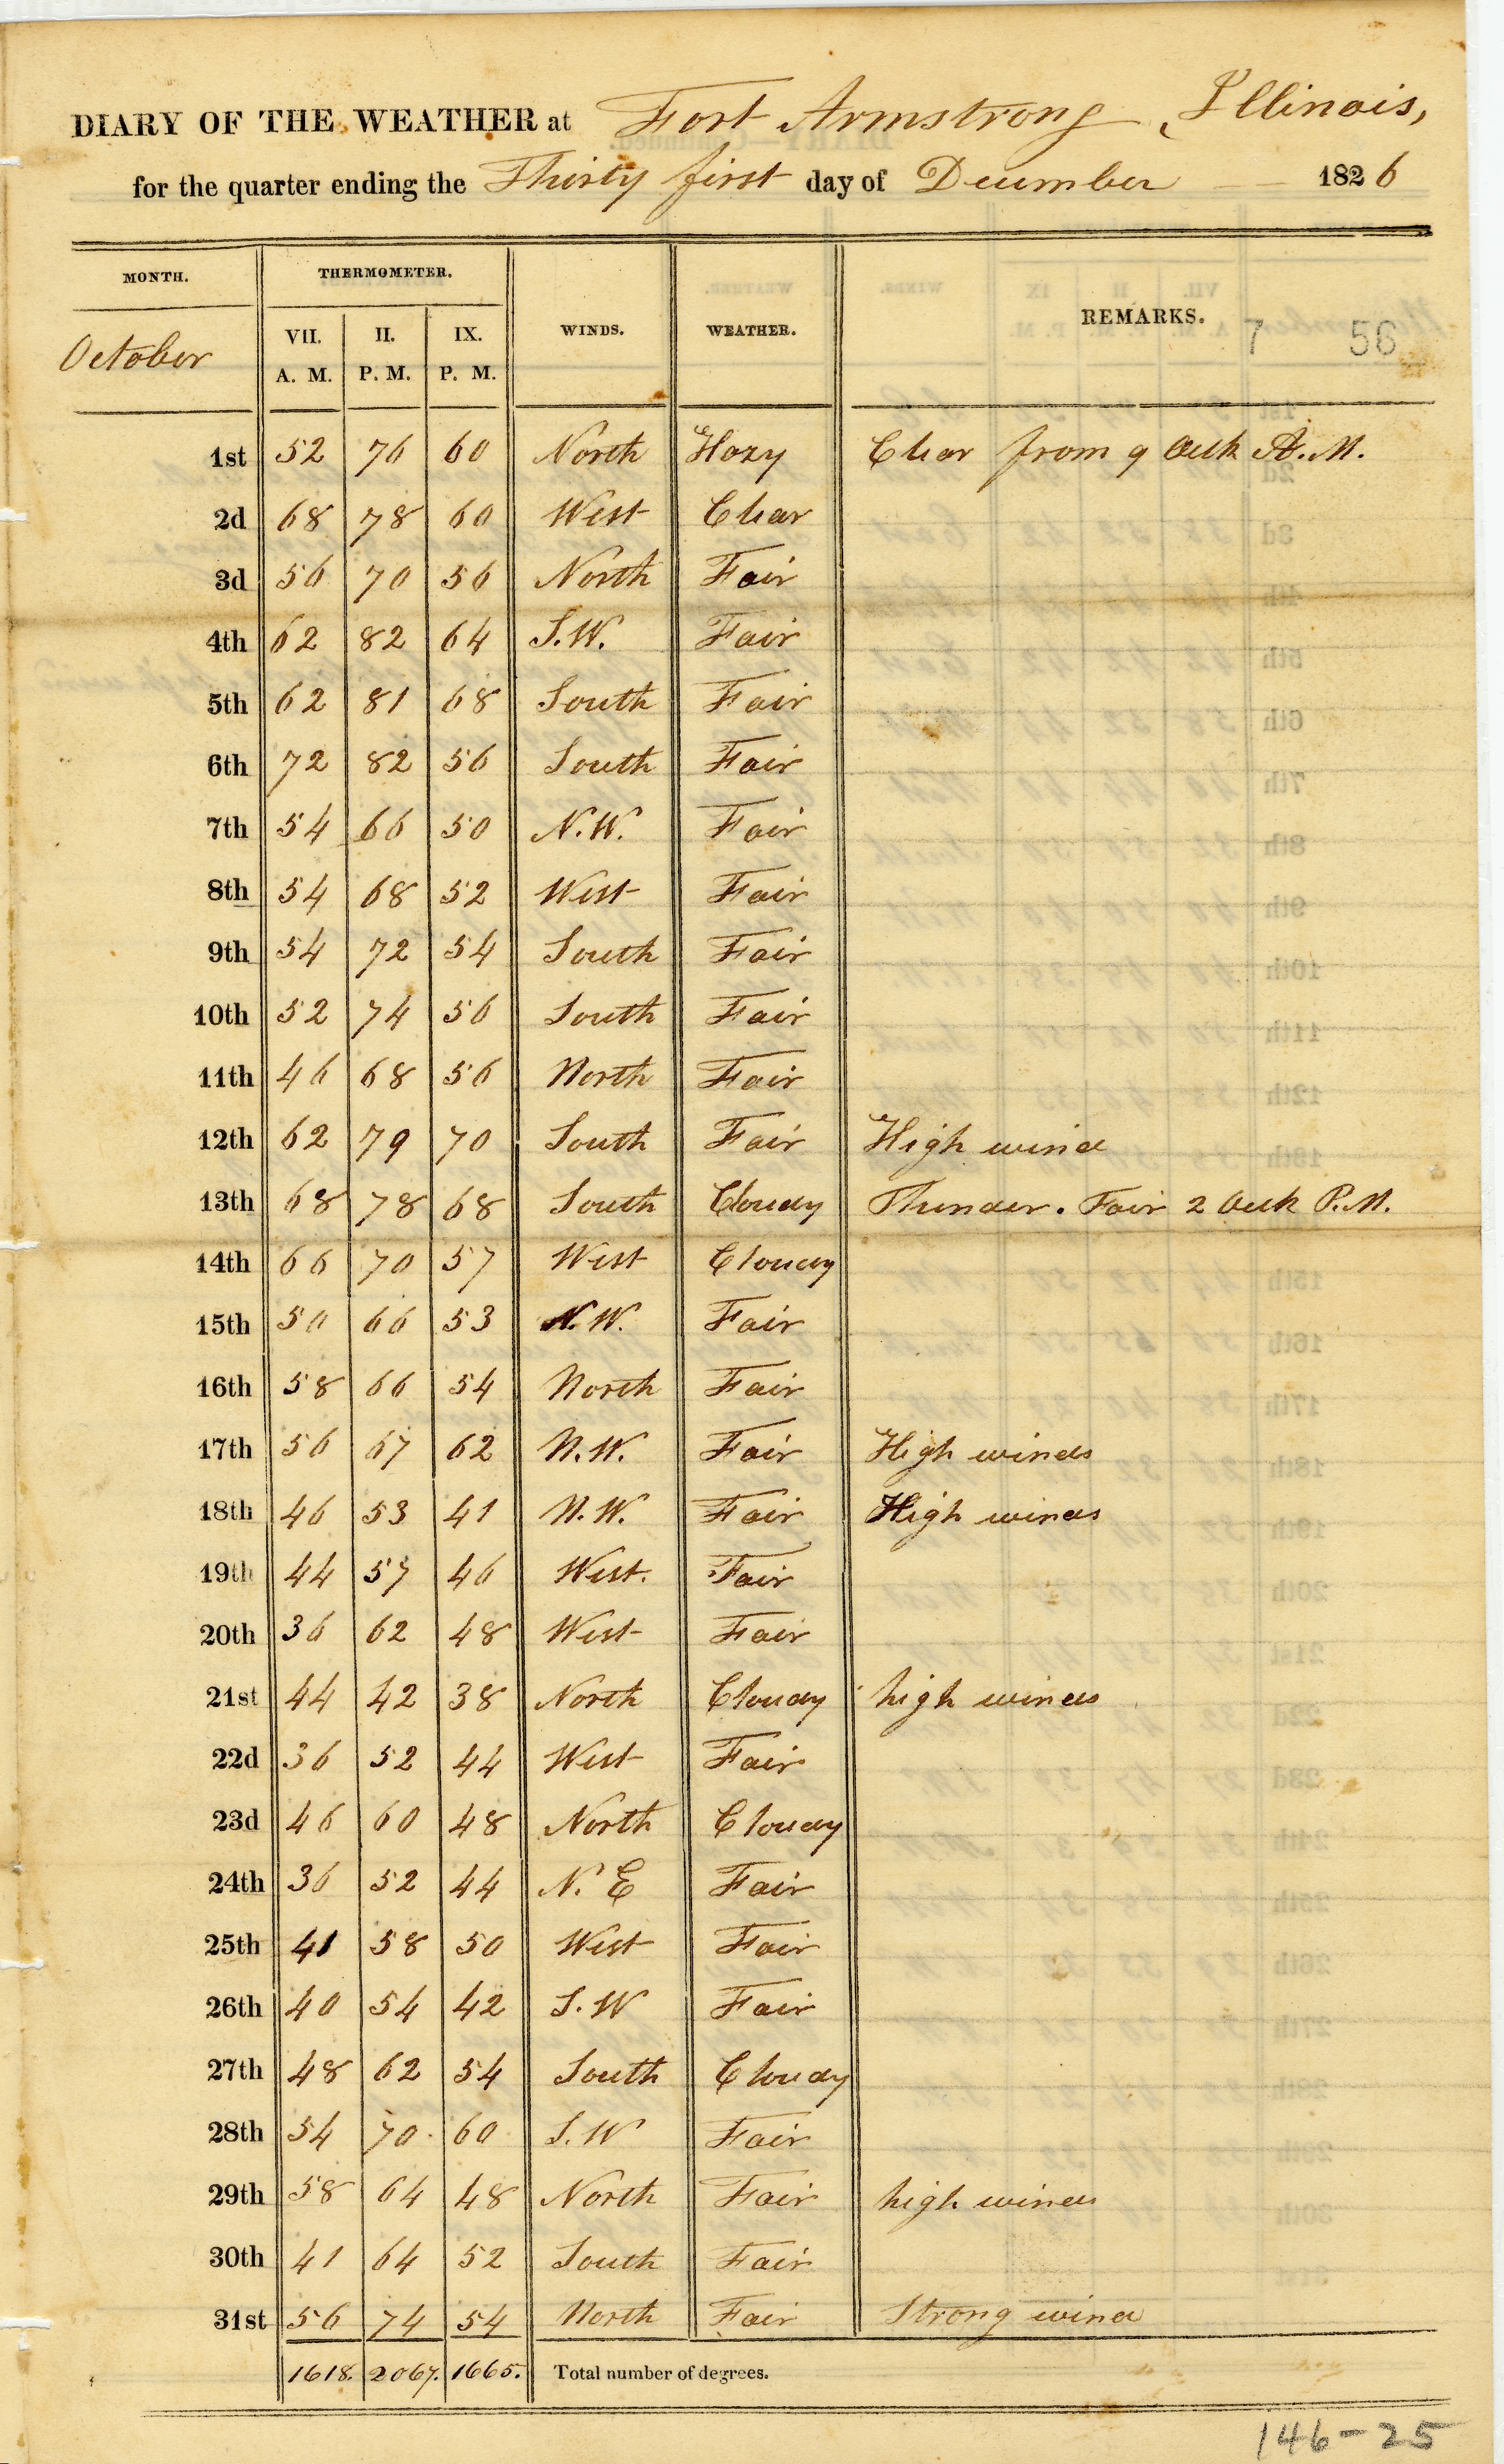 DIARY OF THE WEATHER at Fort Armstrong, Illinois,
for the quarter ending the Thirty first day of December 1826
MONTH. THERMOMETER. WINDS. WEATHER. REMARKS.
October VII. A. M. II. P. M. IX. P. M. 7 56
1st 52 76 60 North Hazy Clear from 9 Oclk A.M.
2d 68 78 60 West Clear
3d 56 70 56 North Fair
4th 62 82 64 S.W. Fair
5th 62 81 68 South Fair
6th 72 82 56 South Fair
7th 54 66 50 N.W. Fair
8th 54 68 52 West Fair
9th 54 72 54 South Fair
10th 52 74 56 South Fair
11th 46 68 56 North Fair
12th 62 79 70 South Fair High wind
13th 68 78 68 South Cloudy Thunder. Fair 2 Oclk P.M.
14th 66 70 57 West Cloudy
15th 50 66 53 N.W. Fair
16th 58 66 54 North Fair
17th 56 67 62 N.W. Fair High winds
18th 46 53 41 N.W. Fair High winds
19th 44 57 46 West. Fair
20th 36 62 48 West Fair
21st 44 42 38 North Cloudy high winds
22d 36 52 44 West Fair
23d 46 60 48 North Cloudy
24th 36 52 44 N. E Fair
25th 41 58 50 West Fair
26th 40 54 42 S. W Fair
27th 48 62 54 South Cloudy
28th 54 70 60 S. W Fair
29th 58 64 48 North Fair high winds
30th 41 64 52 South Fair
31st 56 74 54 North Fair Strong wind
1618. 2067. 1665. Total number of degrees.
146-25